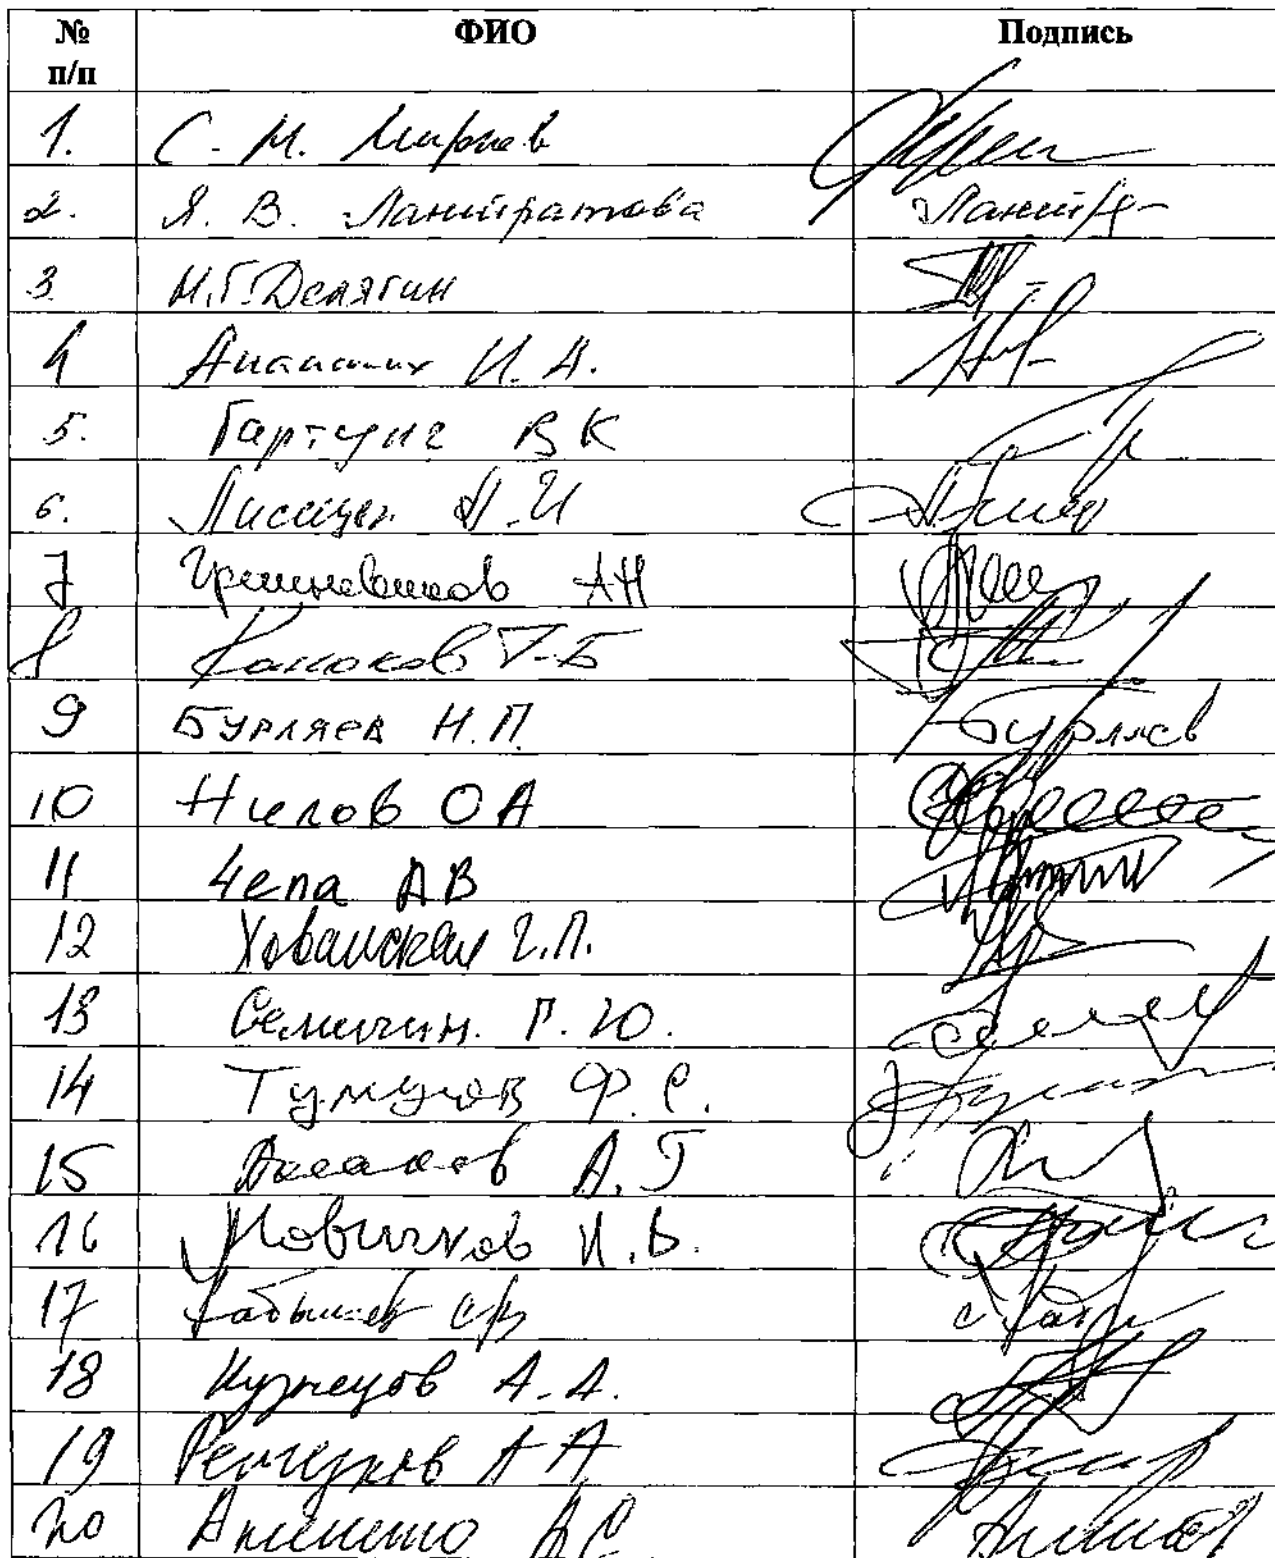 № п/п ФИО Подпись
1. С. М. Миронов
2. Я. В. Лантратова Лантр
3. М.Г. Делягин
4 Ананских И. А.
5. Гартунг В К
6. Лисицын А. И
7 Грешневиков АН
8 Каноков Т. Б
9 Бурляев Н. П. Бурляев
10 Нилов О А
11 Чепа А В
12 Хованская Г.П.
13 Семигин. Г. Ю.
14 Тумусов Ф. С.
15 Аксаков А. Г
16 Новичков Н. В.
17 Кабышев СВ
18 Кузнецов А. А.
19 Ремезков А А
20 Аксененко АС